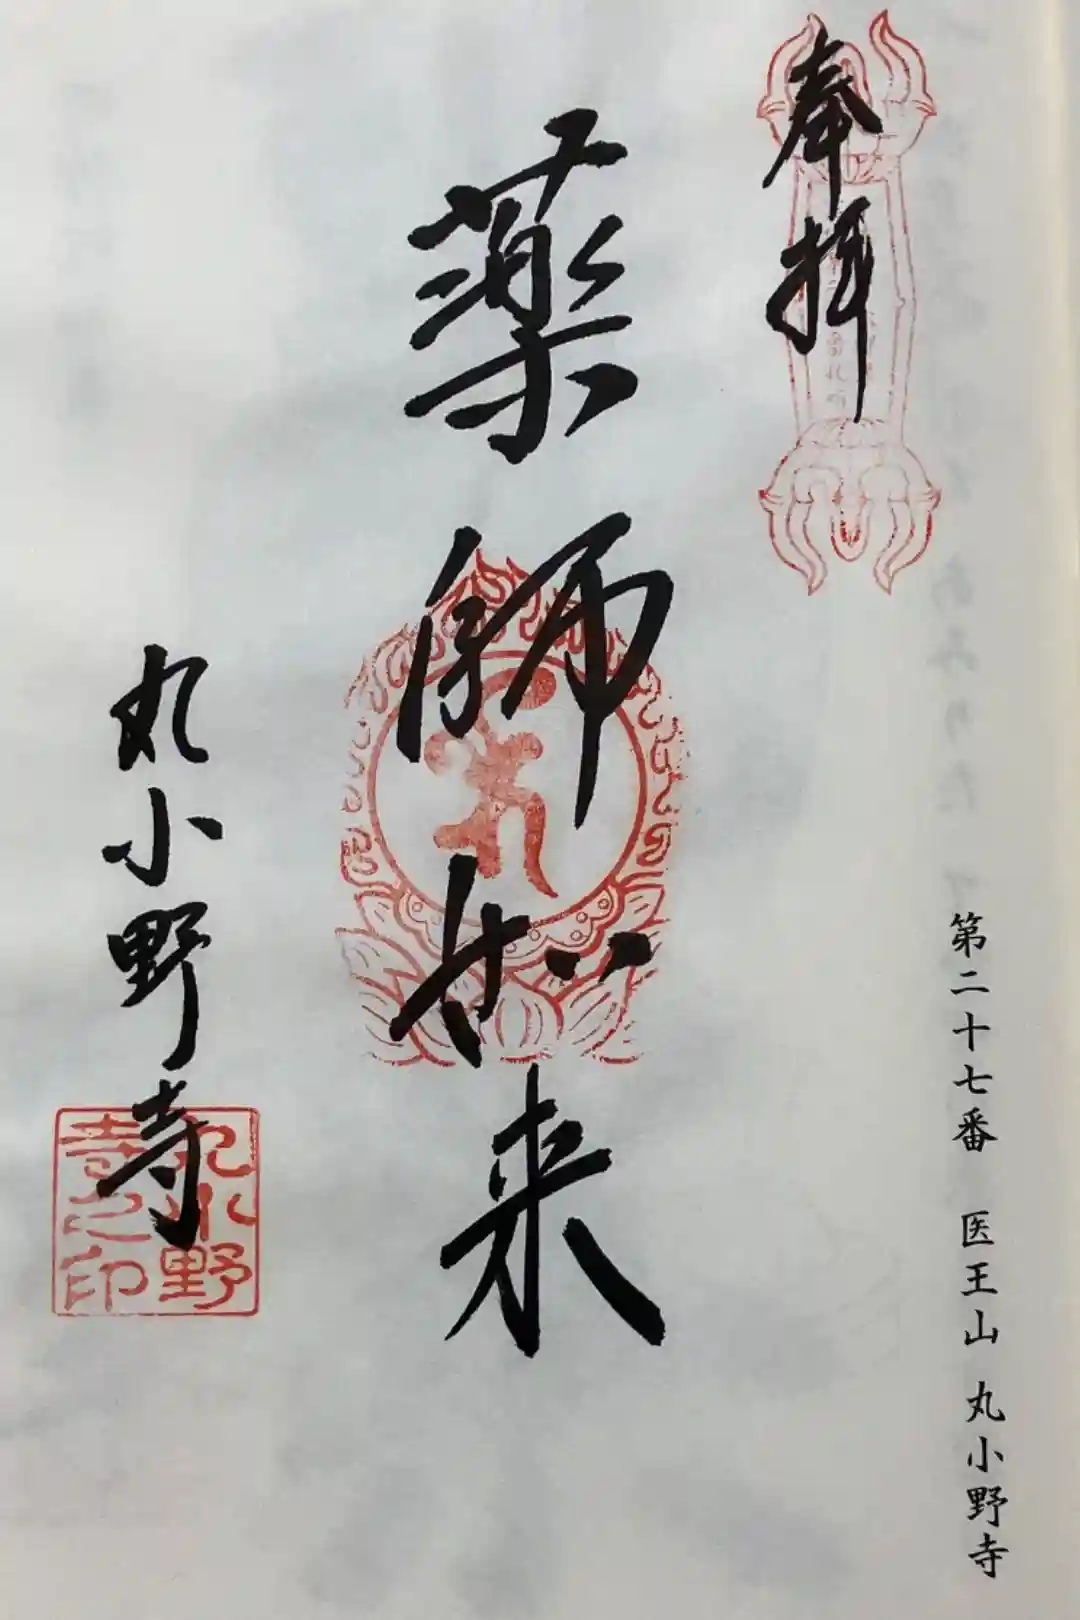 第二十七番 医王山 丸小野寺
奉拝
薬師如来
丸小野寺
丸小野
寺之印